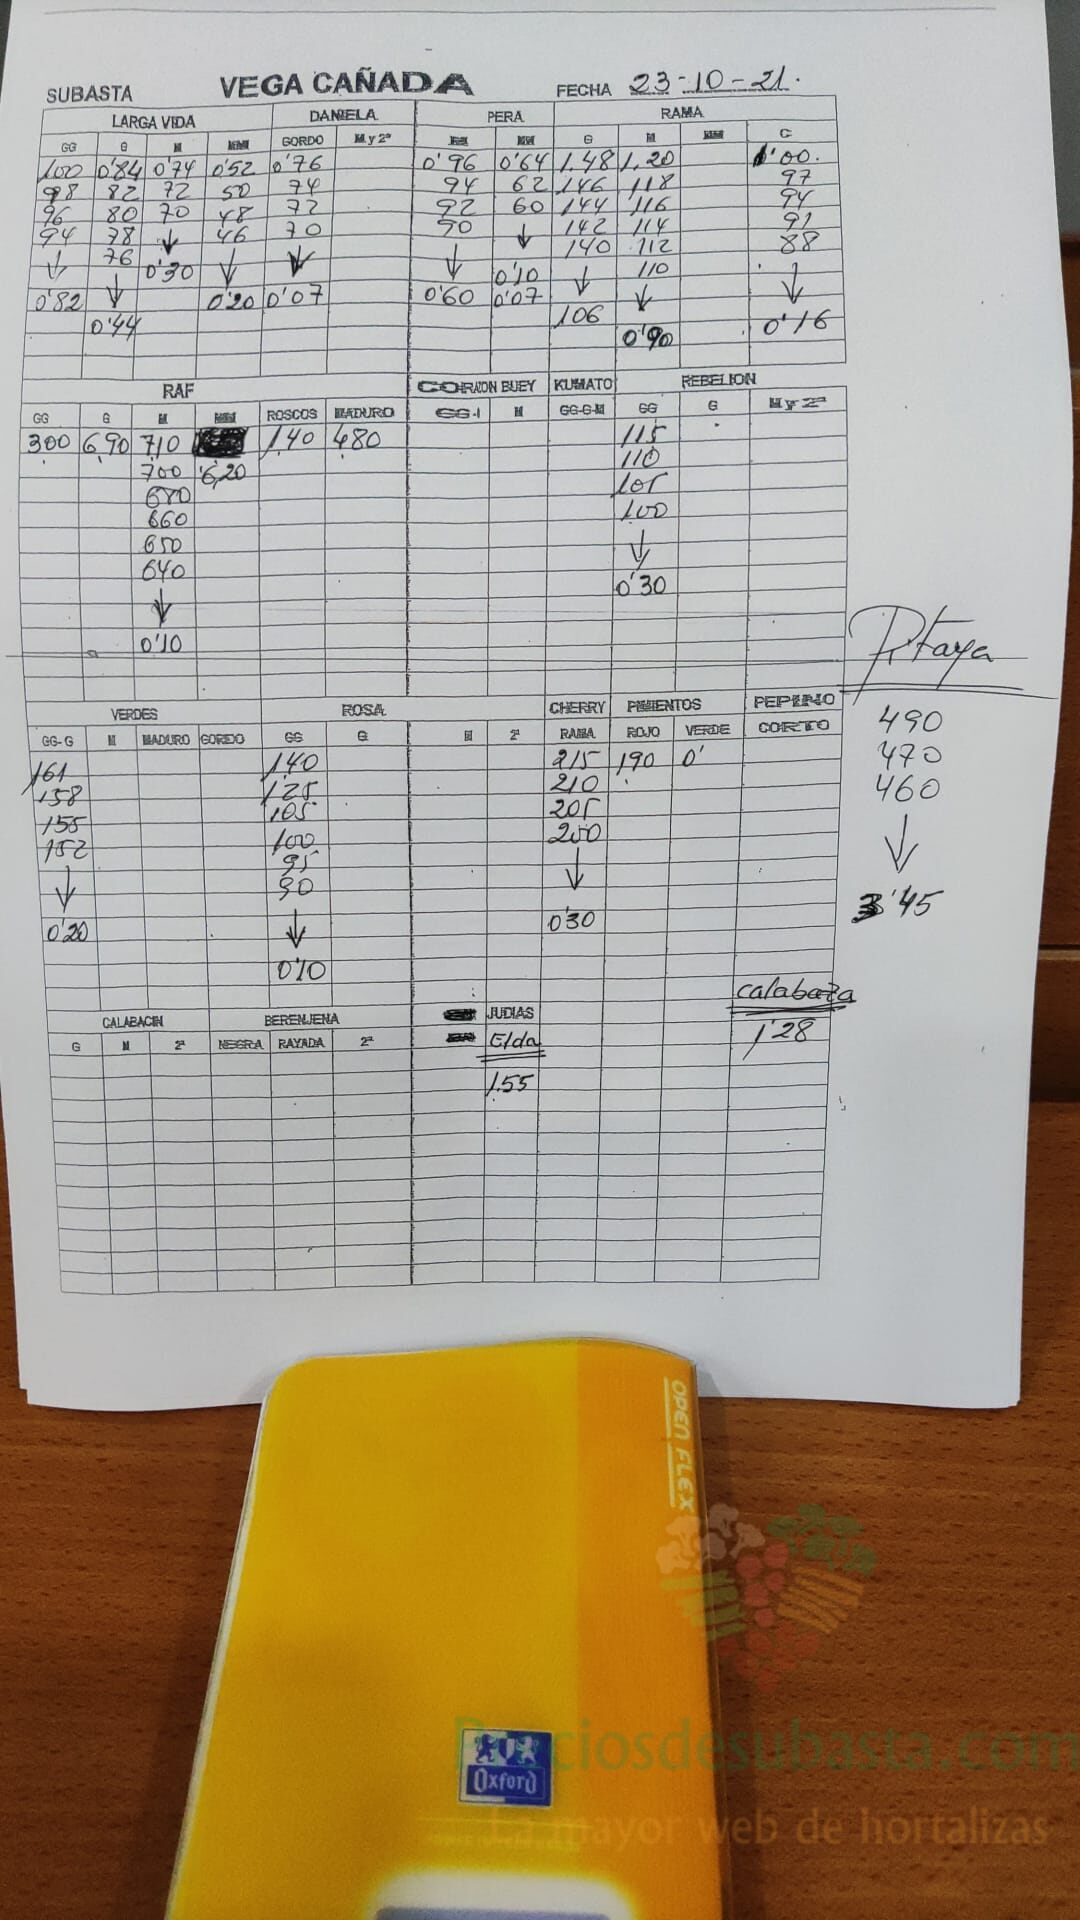 SUBASTA VEGA CAÑADA FECHA 23-10-21.
LARGA VIDA DANIELA PERA RAMA
GG G M MM GORDO M y 2ª M MM G M MM C
100 0'84 0'74 0'52 0'76 0'96 0'64 1.48 1.20 1'00.
98 82 72 50 74 94 62 146 118 97
96 80 70 48 72 92 60 144 116 94
94 78 ↓ 46 70 90 ↓ 142 114 91
↓ 76 0'30 ↓ ↓ ↓ 0'10 140 112 88
0'82 ↓ 0'20 0'07 0'60 0'07 ↓ 110 ↓
0'44 106 ↓ 0'16
0'90
RAF CORAZON BUEY KUMATO REBELION
GG G M MM ROSCOS MADURO GG-1 M GG-G-M GG G M y 2ª
300 6,90 710 1,40 480 115
700 6,20 110
680 105
660 100
650 ↓
640 0'30
↓
0'10
Pitaya
490
470
460
↓
3'45
VERDES ROSA CHERRY PIMIENTOS PEPINO
GG-G M MADURO GORDO GG G M 2ª RAMA ROJO VERDE CORTO
161 140 215 190 0'
158 125 210
155 105 205
152 100 200
↓ 95 ↓
0'20 90 0'30
↓
0'10
calabaza
1'28
CALABACIN BERENJENA JUDIAS
G M 2ª NEGRA RAYADA 2ª Elda
1.55
OPEN FLEX
Oxford
Preciosdesubasta.com
La mayor web de hortalizas